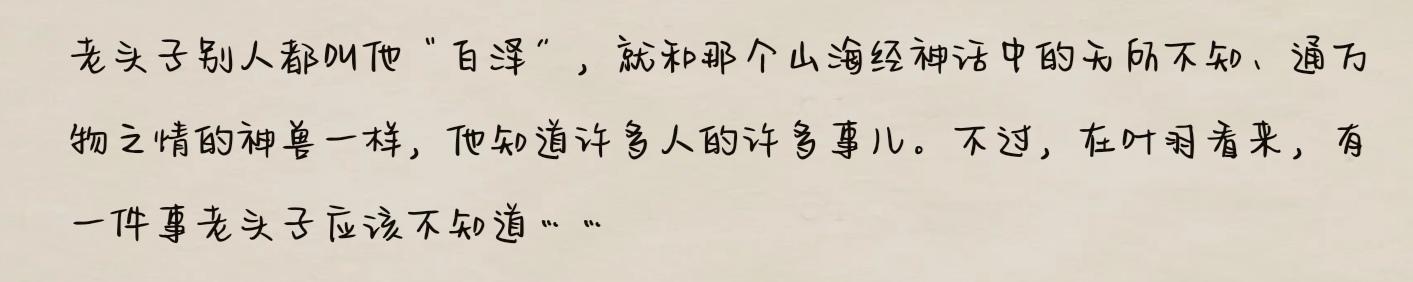 老头子别人都叫他“白泽”，就和那个山海经神话中的无所不知、通万
物之情的神兽一样，他知道许多人的许多事儿。不过，在叶羽看来，有
一件事老头子应该不知道……